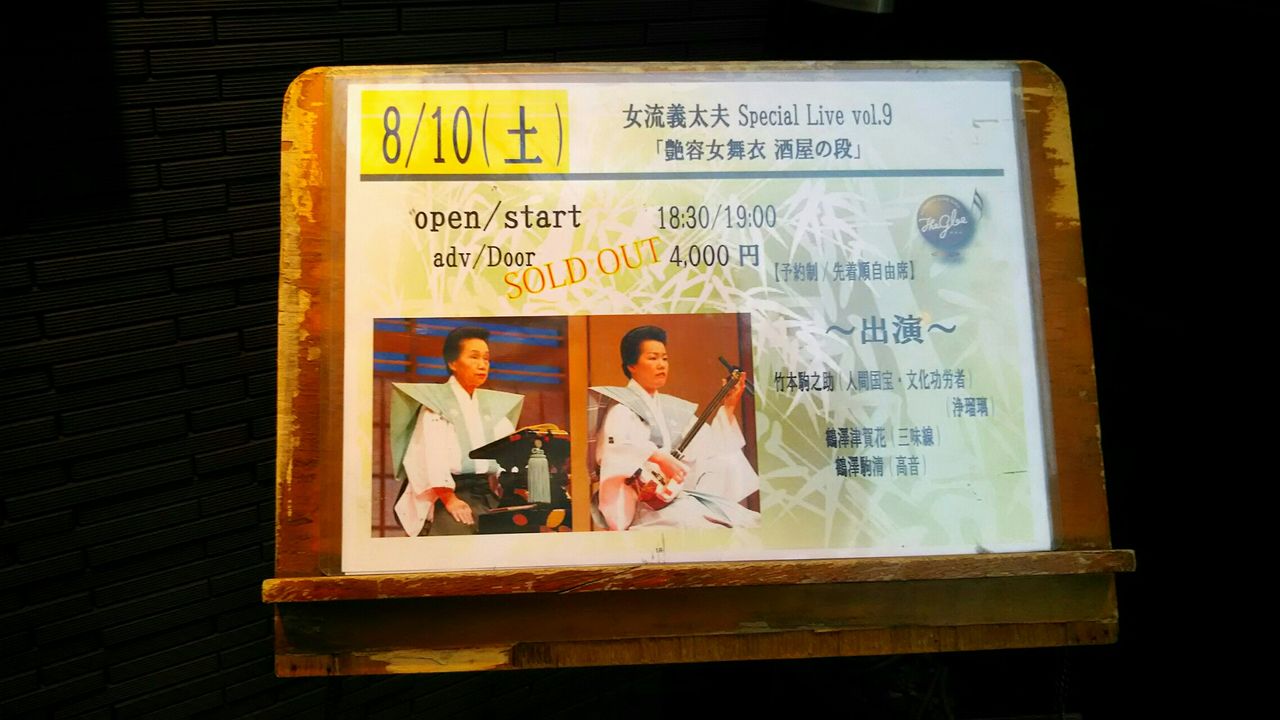 8/10(土)
女流義太夫 Special Live vol.9
「艶容女舞衣 酒屋の段」
open/start 18:30/19:00
adv/Door 4,000 円
SOLD OUT
【予約制 / 先着順自由席】
The Glee
～出演～
竹本駒之助（人間国宝・文化功労者）
（浄瑠璃）
鶴澤津賀花（三味線）
鶴澤駒清（高音）